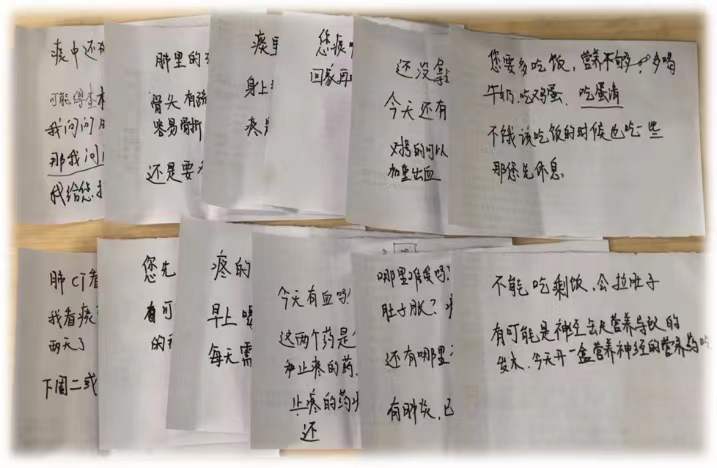 痰中还
可能得
我问问
那我问
我给您
肺里的
骨头有
容易骨折
还是要
痰里
身上
疼
您痰
回家再
还没拿
今天还有
对的可以
加重出血
您要多吃饭，营养不够，多喝
牛奶、吃鸡蛋、吃蛋清
不饿该吃饭的时候也吃一些
那您先休息。
肺CT看
我看痰
两天了
下周二或
您先
有可
的
疼的
早上
每天需
今天有血吗
这两个药是
和止疼的药.
止疼的药
还
哪里难受吗?
肚子胀?
还有哪里
有肺炎,已
不能吃剩饭,会拉肚子
有可能是神经缺营养导致的
发木,今天开一盒营养神经的营养药吃